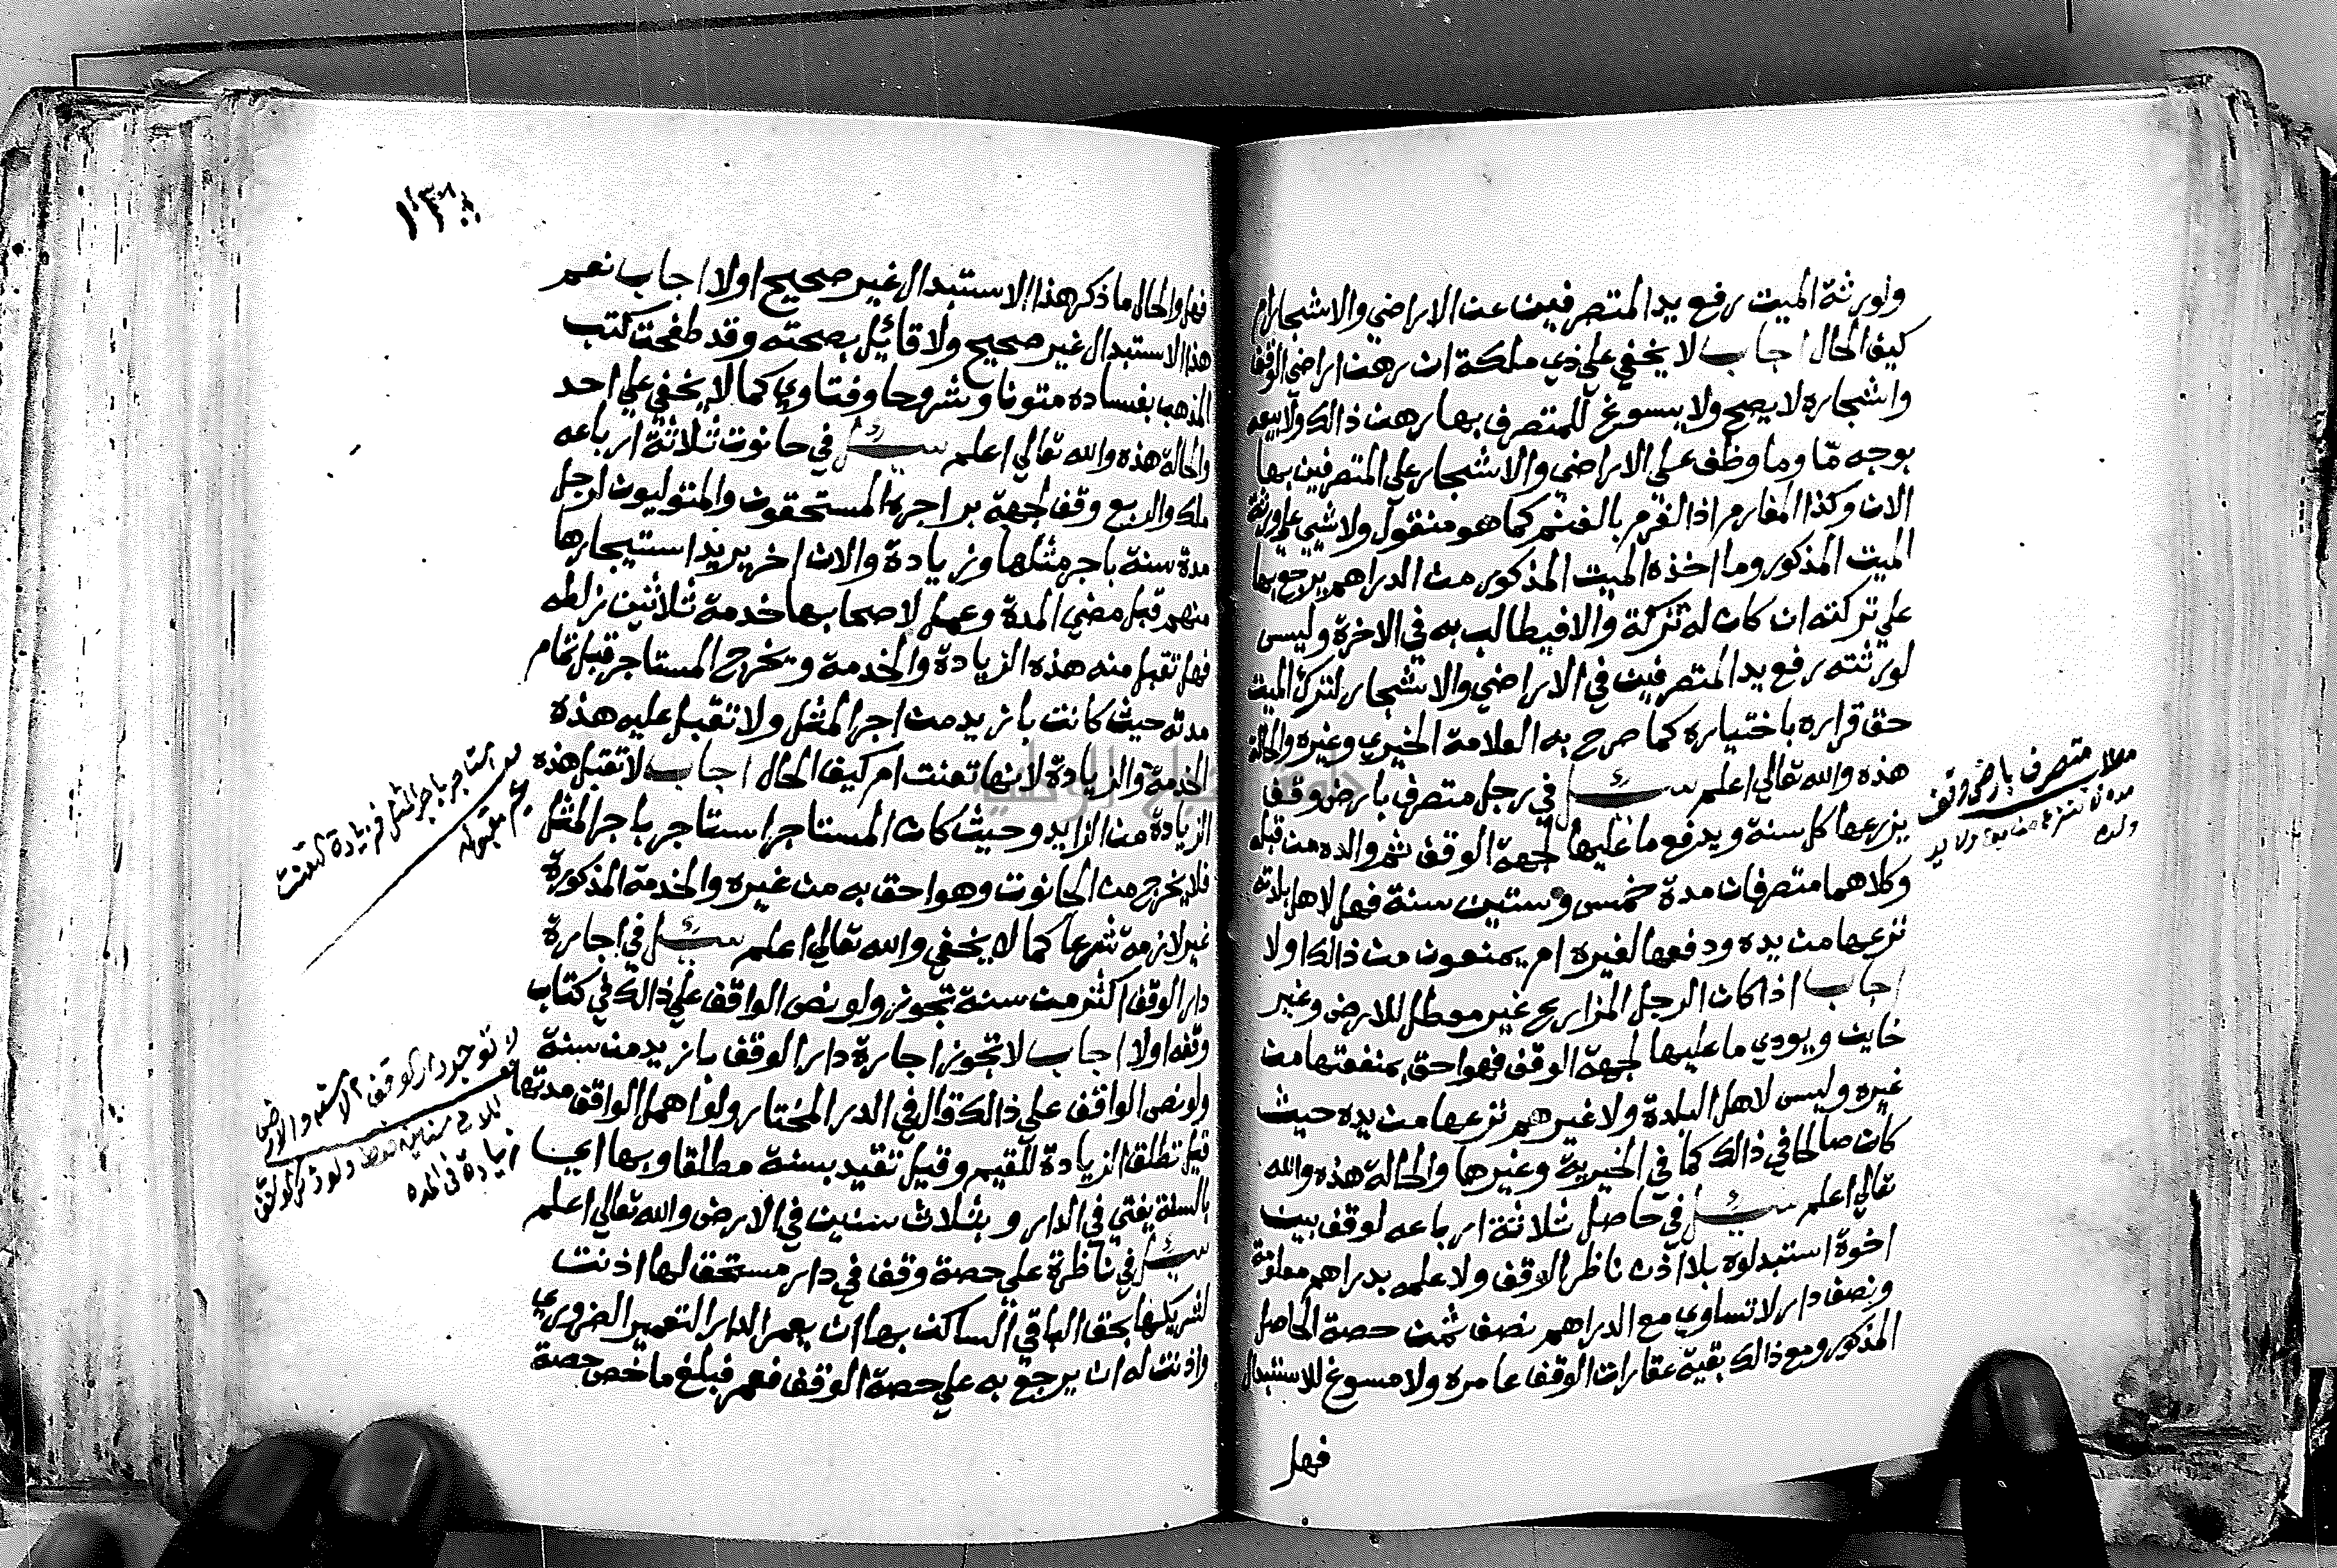 ولورثة الميت رفع يد المتصرفين عن الاراضي والاشجار ام
كيف الحال اجاب لا يخفي علي ذي ملكة ان رهن اراضي الوقف
واشجاره لا يصح ولا يسوغ للمتصرف بها رهن ذالك ولا بيعه
بوجه مّا وما وظف علي الاراضي والاشجار علي المتصرفين بها
الان وكذا المغارم اذ الغرم بالغنم كما هو منقول ولا شي علي ورثة
الميت المذكور وما اخذه الميت المذكور من الدراهم يرجع بها
علي تركته ان كان له تركة والا فيطالب به في الاخرة وليس
لورثته رفع يد المتصرفين في الاراضي والاشجار لترك الميت
حق قراره باختياره كما صرح به العلامة الخيري وغيره والحالة
هذه والله تعالي اعلم سئل في رجل متصرف بارض وقف
يزرعها كل سنة ويدفع ما عليها لجهة الوقف ثم والده من قبله
وكلاهما متصرفان مدة خمس وستين سنة فهل لاهل بلدته
نزعها من يده ودفعها لغيره ام يمنعون من ذالك اولا
اجاب اذا كان الرجل المزارع غير معطل للارض وغير
خاين ويودي ما عليها لجهة الوقف فهو احق بمنفعتها من
غيره وليس لاهل البلدة ولا غيرهم نزعها من يده حيث
كان صالحا في ذالك كما في الخيرية وغيرها والحالة هذه والله
تعالي اعلم سئل في حاصل ثلاثة ارباعه لوقف بين
اخوة استبدلوه بلا اذن ناظر الوقف ولا علمه بدراهم معلومة
ونصف دار لا تساوي مع الدراهم نصف ثمن حصة الحاصل
المذكور ومع ذالك بقية عقارات الوقف عامره ولا مسوغ للاستبدال
فهل
متصرف بارض وقف
ولده
١٣٠
فهل والحال ما ذكر هذا الاستبدال غير صحيح اولا اجاب نعم
هذا الاستبدال غير صحيح ولا قائل بصحته وقد طفحت كتب
المذهب بفساده متونا وشروحا وفتاوي كما لا يخفي علي احد
والحالة هذه والله تعالي اعلم سئل في حانوت ثلاثة ارباعه
ملك والربع وقف لجهة بر اجره المستحقون والمتوليون لرجل
مدة سنة باجر مثلها وزيادة والان اخر يريد استيجارها
منهم قبل مضي المدة وعمل لاصحابها خدمة ثلاثين زلطه
فهل تقبل منه هذه الزيادة والخدمة ويخرج المستاجر قبل تمام
مدته حيث كانت بازيد من اجر المثل ولا تقبل عليه هذه
الخدمة والزيادة لانها تعنت ام كيف الحال اجاب لا تقبل هذه
الزيادة من الزايد وحيث كان المستاجر استاجر باجر المثل
فلا يخرج من الحانوت وهو احق به من غيره والخدمة المذكورة
غير لازمة شرعا كما لا يخفي والله تعالي اعلم سئل في اجارة
دار الوقف اكثر من سنة تجوز ولو نص الواقف علي ذالك في كتاب
وقفه اولا اجاب لا تجوز اجارة دار الوقف بازيد من سنة
ولو نص الواقف علي ذالك قال في الدر المختار ولو اهمل الواقف مدتها
قيل تطلق الزيادة للقيم وقيل تقيد بسنة مطلقا وبها اي
بالسنة يفتي في الدار وبثلاث سنين في الارض والله تعالي اعلم
سئل في ناظرة علي حصة وقف في دار مستحق لها اذنت
لشريكها بحق الباقي الساكن بها ان يعمر الدار التعمير الضروري
واذنت له ان يرجع به علي حصة الوقف فعمر فبلغ ما خص حصة
استاجر باجر المثل فزيادة التعنت
غير مقبوله
لا توجر دار الوقف الا سنه والاراضي
زيادة في المده